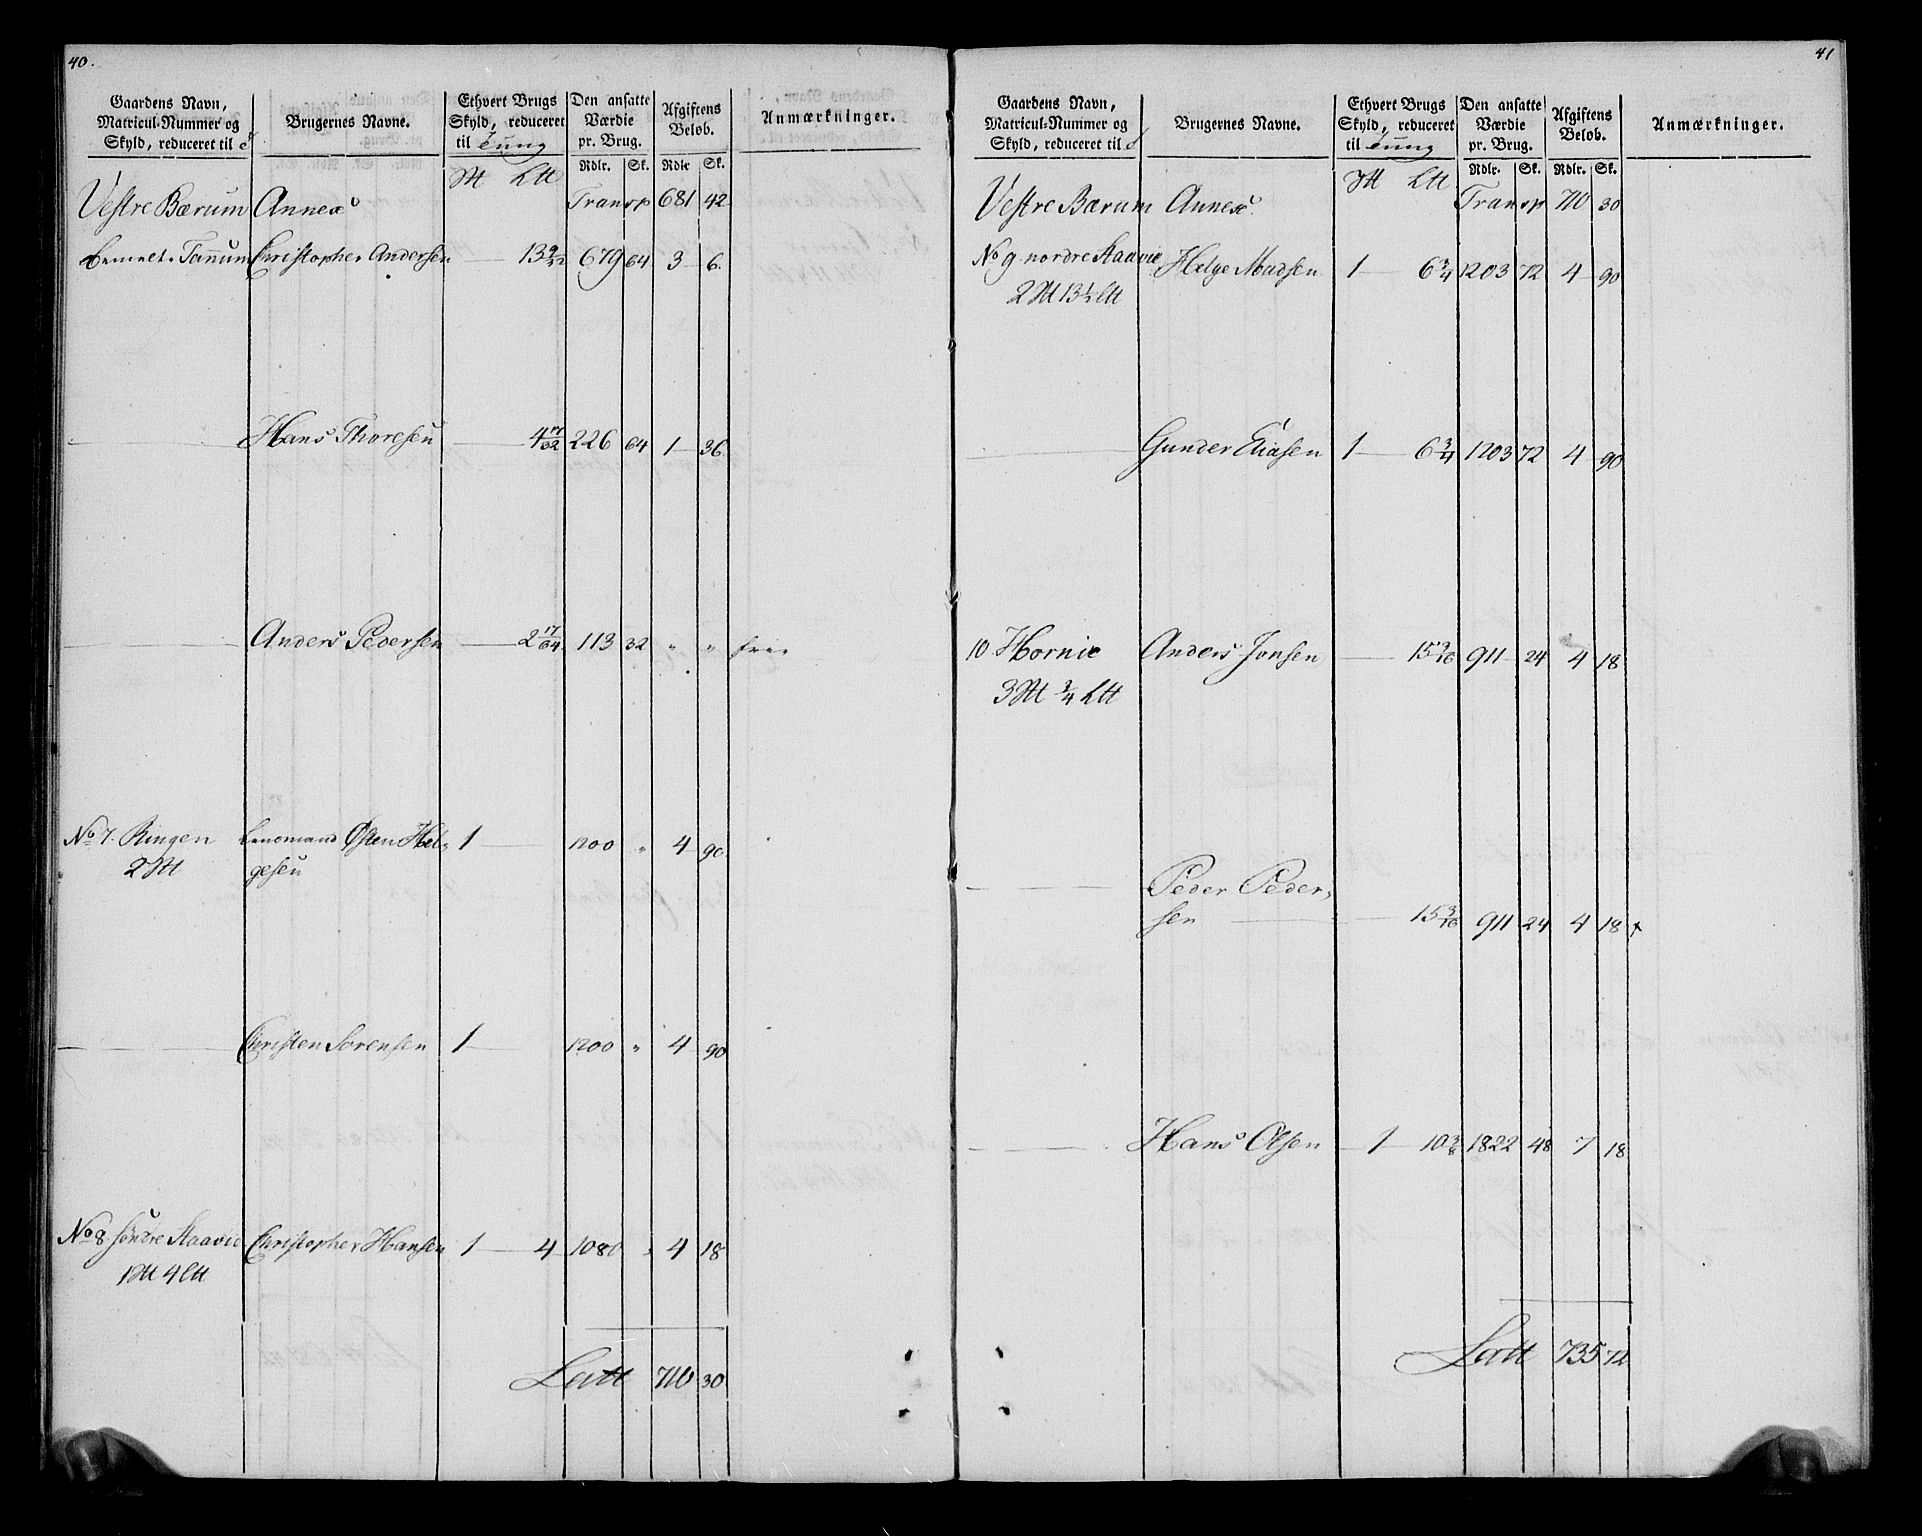 40.
Gaardens Navn, Matricul-Nummer og Skyld, reduceret til | Brugernes Navne. | Ethvert Brugs Skyld, reduceret til Tung | Den ansatte Værdie pr. Brug. | Afgiftens Beløb. | Anmærkninger.
Rdlr. Sk. Rdlr Sk.
Vestre Bærum Annex Transp 681 42
Christopher Andersen 679 64 3 6.
Hans Thoresen 4 17/32 226 64 1 36
Anders Pedersen 2 17/64 113 32 " " frie
No 7. Ringen Lensmand Østen Hel- 1 1200 " 4 90
gesen
Christen Sørensen 1 1200 " 4 90
No 8 søndre Staavie Christopher Hansen 1 4 1080 " 4 18
Latt 710 30
41
Gaardens Navn, Matricul-Nummer og Skyld, reduceret til | Brugernes Navne. | Ethvert Brugs Skyld, reduceret til Tung | Den ansatte Værdie pr. Brug. | Afgiftens Beløb. | Anmærkninger.
Rdlr. Sk. Rdlr. Sk.
Vestre Bærum Annex Transp 710 30
No 9 nordre Staavie Helge Madsen 1 6 3/4 1203 72 4 90
Gunder Eliasen 1 6 3/4 1203 72 4 90
10 Hornie Anders Jonsen 15 3/16 911 24 4 18
Peder Peder-
sen 15 3/16 911 24 4 18
Hans Olsen 1 10 3/8 1822 48 7 18
Latt 735 72